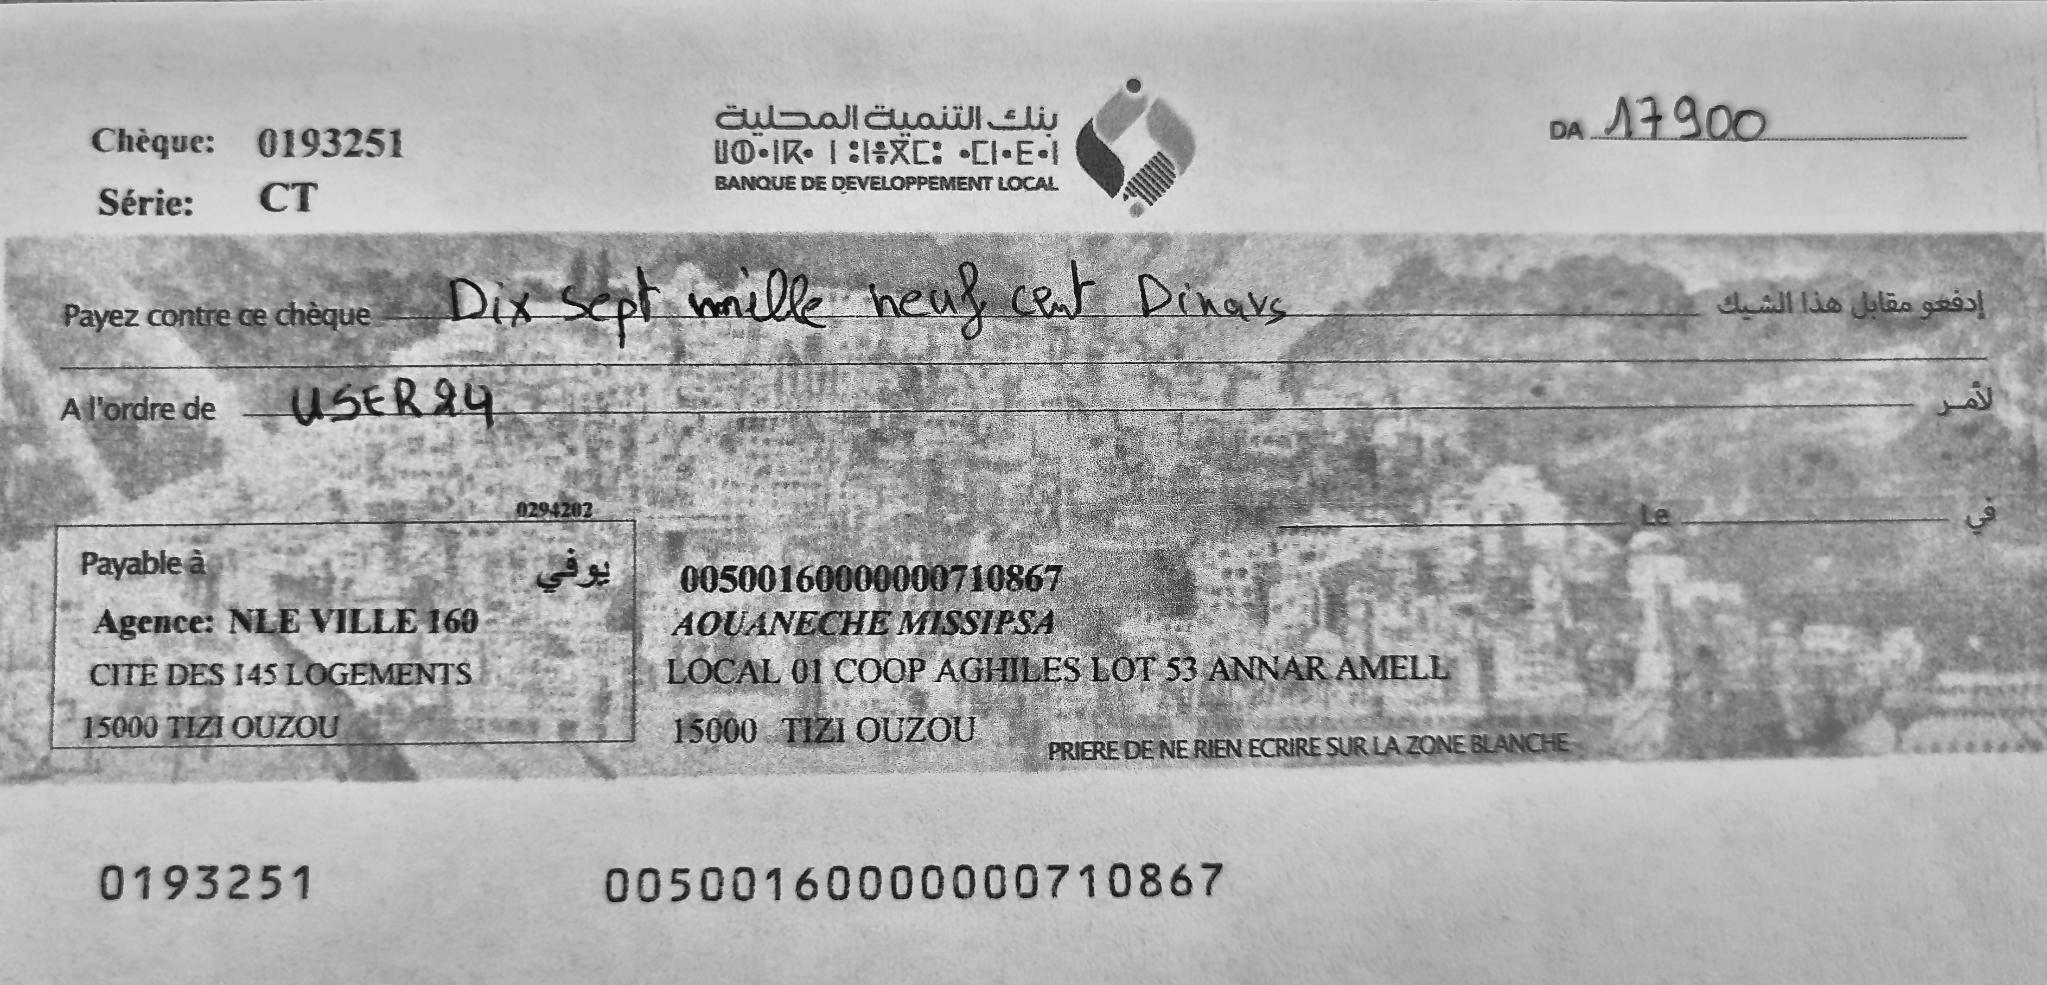 Chèque: 0193251
Série: CT
بنك التنمية المحلية
ⵡⵀ•ⵏⴽ• ⵏ ⵓⵏⴻⴳⵎⵓ •ⵎⵏ•ⴹ•ⵏ
BANQUE DE DEVELOPPEMENT LOCAL
DA 17900
Payez contre ce chèque Dix sept mille neuf cent Dinars إدفعو مقابل هذا الشيك
A l'ordre de USER24 لأمر
0294202
Le في
Payable à يوفي
Agence: NLE VILLE 160
CITE DES 145 LOGEMENTS
15000 TIZI OUZOU
00500160000000710867
AOUANECHE MISSIPSA
LOCAL 01 COOP AGHILES LOT 53 ANNAR AMELL
15000 TIZI OUZOU
PRIERE DE NE RIEN ECRIRE SUR LA ZONE BLANCHE
0193251 00500160000000710867